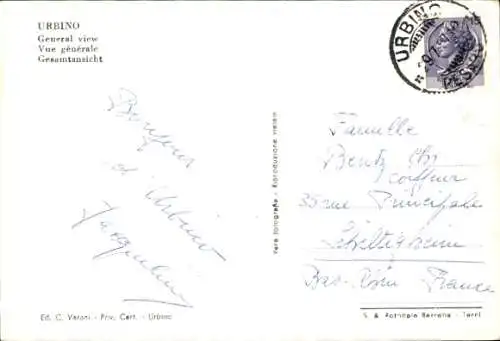 URBINO
General view
Vue générale
Gesamtansicht
URBINO
PESARO
Bonjour
d'Urbino
Jacqueline
Famille
Bentz Ch.
coiffeur
35 rue Principale
Bas-Rhin France
Vera fotografia - Riproduzione vietata
Ed. C. Veroni - Priv. Cert. - Urbino
S. A. Poligrafico - Terni